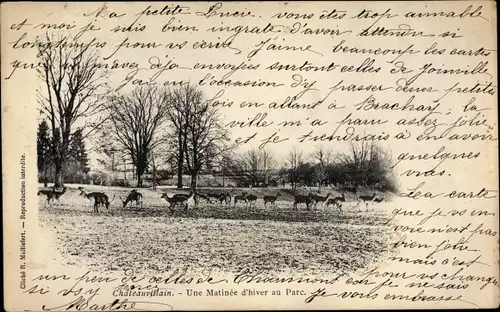 Ma petite Lucie, vous êtes trop aimable
et moi je suis bien ingrate d'avoir attendu si
longtemps pour vous écrire. J'aime beaucoup les cartes
que vous m'avez déjà envoyées surtout celles de Joinville
J'ai eu l'occasion d'y passer deux petites
fois en allant à Brachay; la
ville m'a paru assez jolie
et je tiendrais à en avoir
quelques
vues.
La carte
que je vous
envoie n'est pas
bien jolie, je
mais
pour vous changer
un peu de celles de Chaumont car je
suis
Je vous embrasse
Marthe
Châteauvillain. - Une Matinée d'hiver au Parc.
Cliché R. Maillefert. - Reproduction interdite.